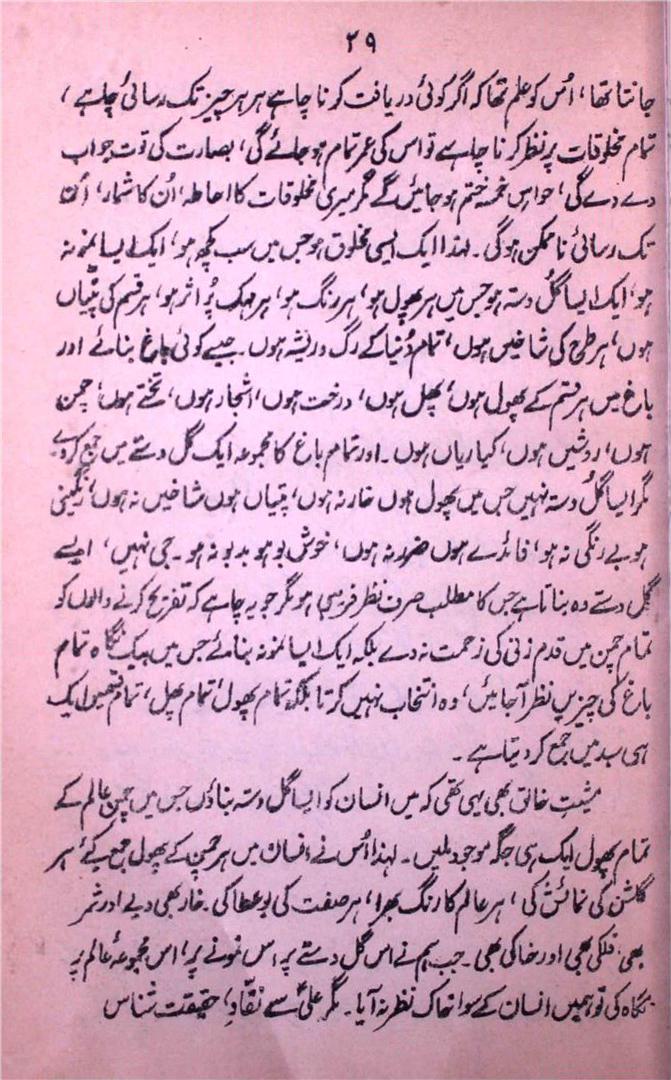 ۲۹
جانتا تھا، اُس کو علم تھا کہ اگر کوئی دریافت کرنا چاہے ہر ہر چیز تک رسائی چاہے،
تمام مخلوقات پر نظر کرنا چاہے تو اس کی عمر تمام ہو جائے گی، بصارت کی قوت جواب
دے دے گی، حواسِ خمسہ ختم ہو جائیں گے مگر میری مخلوقات کا احاطہ، اُن کا شمار، اُن
تک رسائی ناممکن ہوگی۔ لہٰذا ایک ایسی مخلوق ہو جس میں سب کچھ ہو، ایک ایسا نمونہ
ہو، ایک ایسا گل دستہ ہو جس میں ہر پھول ہو، ہر رنگ ہو، ہر مہک پُر اثر ہو، ہر قسم کی پتیاں
ہوں، ہر طرح کی شاخیں ہوں، تمام دُنیا کے رگ و ریشہ ہوں۔ جیسے کوئی باغ بنائے اور
باغ میں ہر قسم کے پھول ہوں، پھل ہوں، درخت ہوں، اشجار ہوں، تختے ہوں، چمن
ہوں، روشیں ہوں، کیاریاں ہوں۔ اور تمام باغ کا مجموعہ ایک گل دستے میں جمع کر دے
مگر ایسا گل دستہ نہیں جس میں پھول ہوں خار نہ ہوں، پتیاں ہوں شاخیں نہ ہوں، رنگینی
ہو بے رنگی نہ ہو، فائدے ہوں ضرر نہ ہوں، خوش بو ہو بدبو نہ ہو۔ جی نہیں، ایسے
گل دستے وہ بناتا ہے جس کا مطلب صرف نظر فریبی ہو مگر جو یہ چاہے کہ تفریح کرنے والوں کو
تمام چمن میں قدم زنی کی زحمت نہ دے بلکہ ایک ایسا نمونہ بنائے جس میں بیک نگاہ تمام
باغ کی چیزیں نظر آ جائیں، وہ انتخاب نہیں کرتا بلکہ تمام پھول، تمام پھل، تمام ایک
ہی سبد میں جمع کر دیتا ہے۔
مشیتِ خالق بھی یہی تھی کہ میں انسان کو ایسا گل دستہ بناؤں جس میں چمنِ عالم کے
تمام پھول ایک ہی جگہ موجود ملیں۔ لہٰذا اُس نے انسان میں ہر چمن کے پھول جمع کیے، ہر
گلشن کی نمائش کی، ہر عالم کا رنگ بھرا، ہر صفت کی بو عطا کی۔ خار بھی دیے اور ثمر
بھی، فلکی بھی اور خاکی بھی۔ جب ہم نے اس گل دستے پر، اس نمونے پر، اس مجموعۂ عالم پر
نگاہ کی تو ہمیں انسان کے سوا خاک نظر نہ آیا۔ مگر علیؑ سے نقّاد، حقیقت شناس